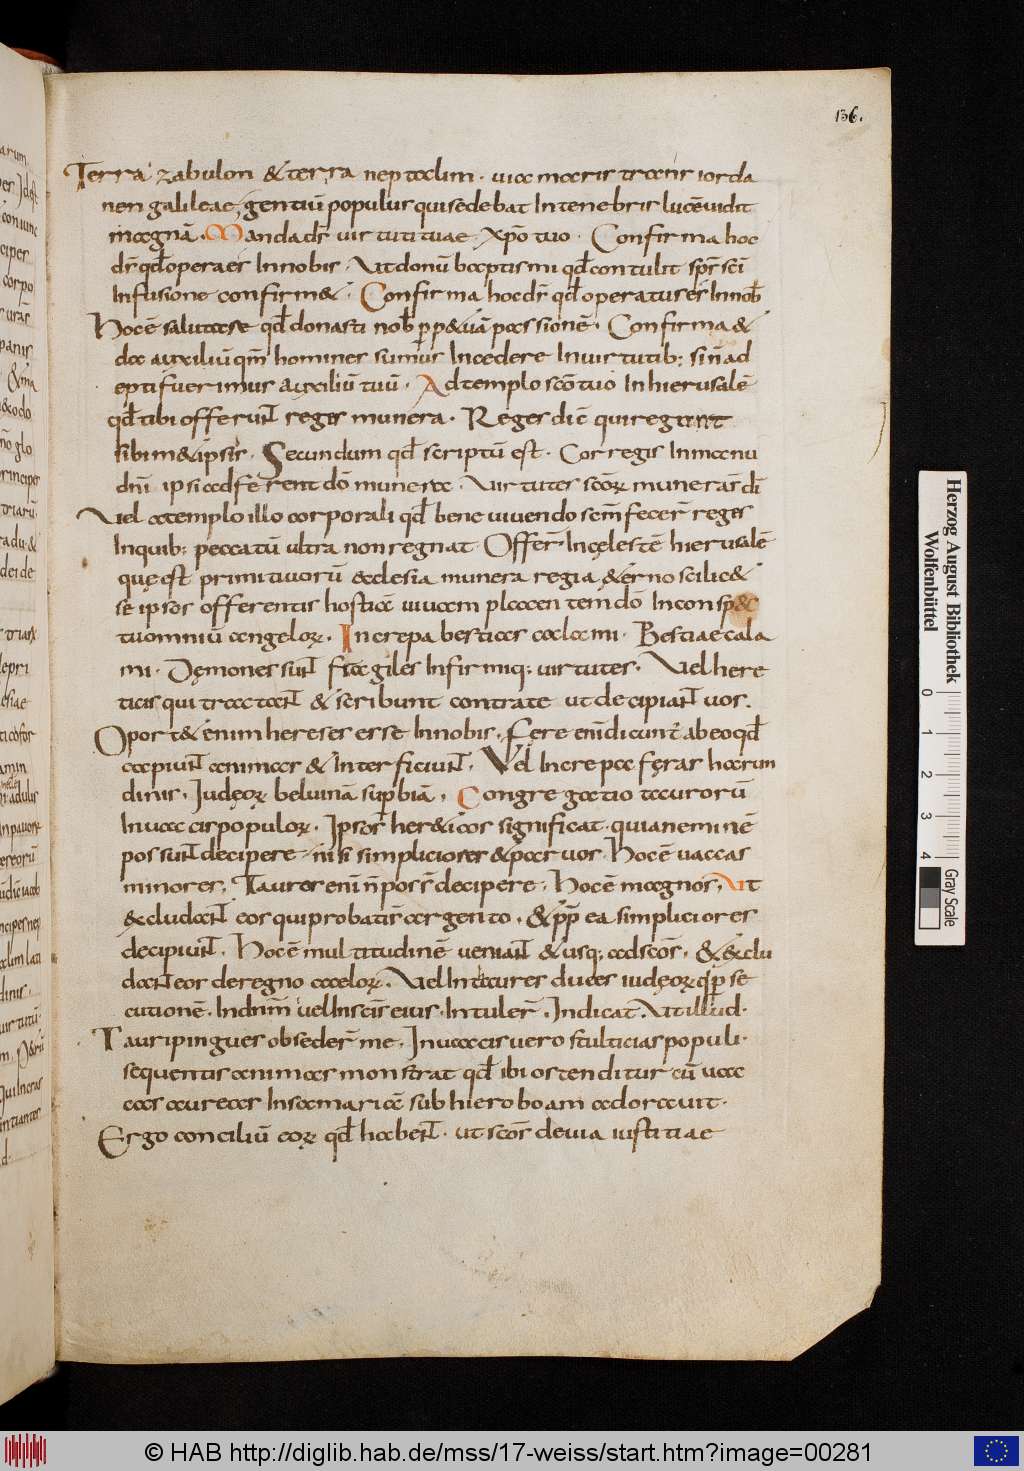 136.
Terra zabulon & terra neptalim · uia maris trans iorda
nen galileae, gentiū populus qui sedebat In tenebris lucē uidit
magnā · Manda dš uirtuti tuae · xp̄o tuo · Confirma hoc
dš qd̄ operaes Innobis · Ut donū baptismi qd̄ contulit sp̄s sc̄i
Infusione confirm& · Confirma hoc dš qd̄ operatus es Innob̄
Hoc ē salutare qd̄ donasti nob̄ p̱ p̱p&uā passionē · Confirma &
da auxiliū qm̄ homines sumus Incedere In uirtutib; si n̄ ad
epti fuerimus auxiliū tuū · Ad templo sc̄o tuo In hierusalē
qd̄ tibi offerunt reges munera · Reges diē qui regunt
sibim& ip̄sis · Secundum qd̄ scriptū est · Cor regis In manu
dn̄i ipsi adferent dō munera · uirtutes sc̄orꝝ munera s̄ di
Uel a templo illo corporali qd̄ bene uiuendo sem̄ fecer̄ reges
In quib; peccatū ultra non regnat · Offer̄ In cęlestē hierusalē
quę est primitiuorū ecclesia munera regia, & erno scilic&
se ipsos offerentes hostiā uiuam placentem dō In conspec
tu omniū angelorꝝ · Increpa bestias calami · Bestiae cala
mi · Dęmones sunt fragiles Infirmiq; uirtutes · Uel here
ticis qui tractant & scribunt contra te ut decipiant uos ·
Oport& enim hereses esse In nobis · Fęre enī dicunt̄ ab eo qd̄
capiunt animas & Interficiunt · Uel Increpa fęras harun
dinis · Judęorꝝ beluinā sup̱biā · Congregatio taurorū
In uaccis populorꝝ · Ipsos her&icos significat · quia neminē
possunt decipere · nisi simpliciores & pacc uos · Hoc ē uaccas
minores · Tauros enī n̄ poss̄ decipere · Hoc ē magnos · Ut
&cludant eos qui probati s̄ argento · & pp̄ ea simpliciores
decipiunt · Hoc ē multitudinē ueniant & usq; ad sc̄os · & &clu
dant eos de regno caelorꝝ · Uel In tauros duces iudęorꝝ q p̱se
cutionē · In dn̄m uel In sc̄is eius · Intuler̄ · Indicat · Ut illud ·
Tauri pingues obseder̄ me · In uaccis uero stulticias populi ·
sequentis animas monstrat qd̄ ibi ostenditur cū uac
cas aureas In samariā sub hieroboam adorauit ·
Ergo conciliū eorꝝ qd̄ habent · ut sc̄os de uia iustitiae
Herzog August Bibliothek
Wolfenbüttel
0 1 2 3 4
Gray Scale
© HAB http://diglib.hab.de/mss/17-weiss/start.htm?image=00281